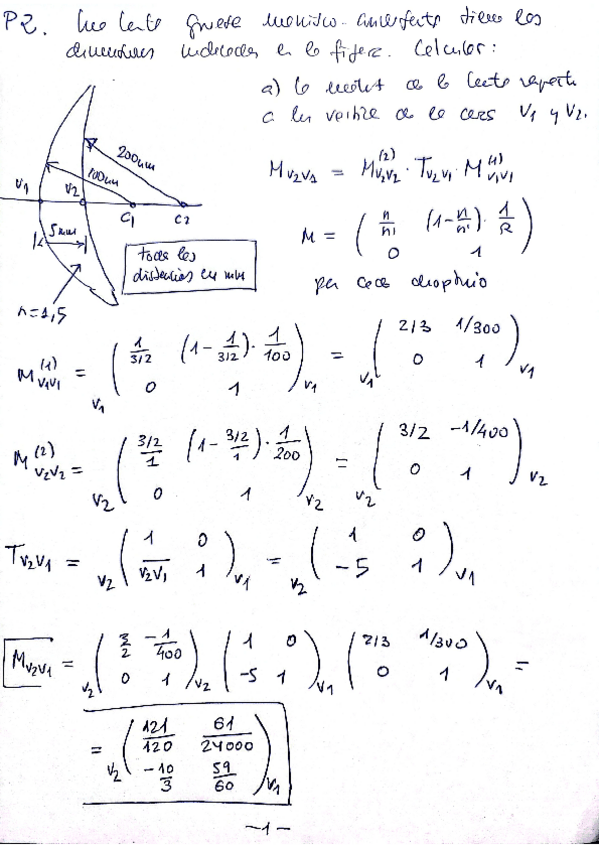 P2. Una lente gruesa menisco-convergente tiene las
dimensiones indicadas en la figura. Calcular:
a) la matriz de la lente respecto
a los vértices de las caras V1 y V2.
200mm
100mm
V1
V2
C1
C2
5mm
n=1,5
todas las
distancias en mm
M_{V2V1} = M^{(2)}_{V2V2} · T_{V2V1} · M^{(1)}_{V1V1}
M = ( n/n' (1-n/n')· 1/R
0 1 )
para cada dioptrio
M^{(1)}_{V1V1} = _{V1}( 1/(3/2) (1- 1/(3/2))· 1/100 ; 0 1 )_{V1} = _{V1}( 2/3 1/300 ; 0 1 )_{V1}
M^{(2)}_{V2V2} = _{V2}( (3/2)/1 (1- (3/2)/1)· 1/200 ; 0 1 )_{V2} = _{V2}( 3/2 -1/400 ; 0 1 )_{V2}
T_{V2V1} = _{V2}( 1 0 ; V2V1 1 )_{V1} = _{V2}( 1 0 ; -5 1 )_{V1}
M_{V2V1} = _{V2}( 3/2 -1/400 ; 0 1 )_{V2} ( 1 0 ; -5 1 )_{V1} ( 2/3 1/300 ; 0 1 )_{V1} =
= _{V2}( 121/120 61/24000 ; -10/3 59/60 )_{V1}
-1-